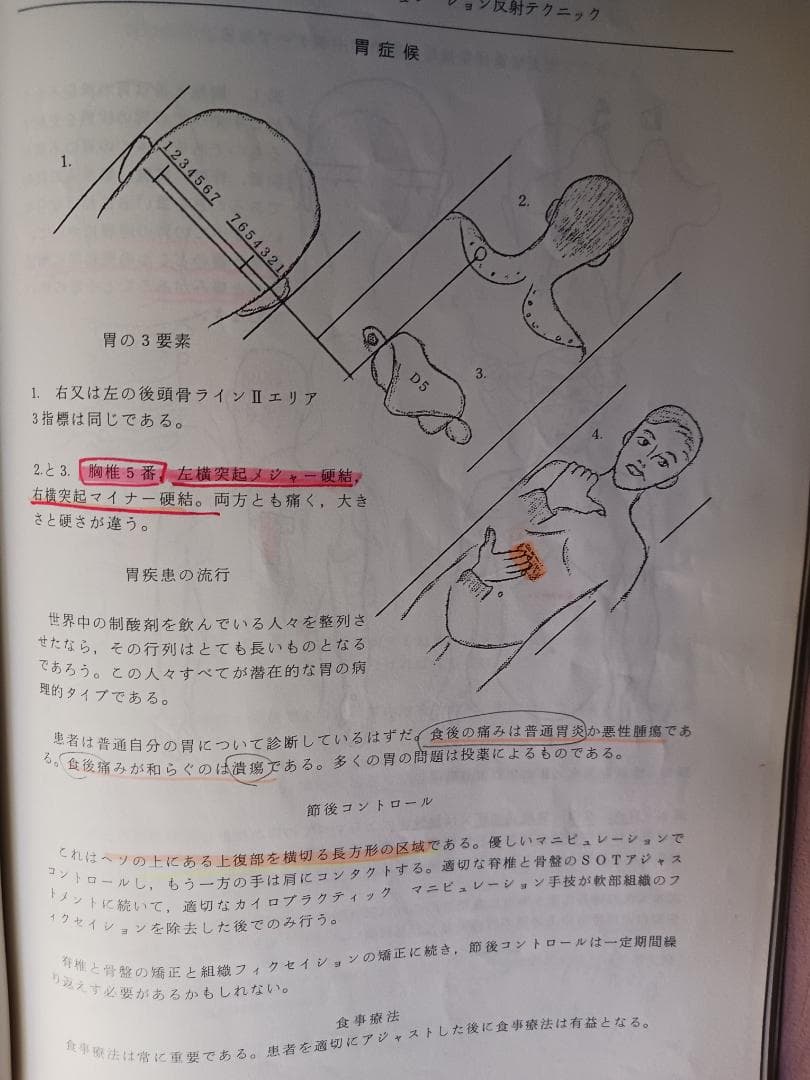 ュレーション反射テクニック
胃症候
1.
1234567
7654321
2.
3.
D5
4.
胃の3要素
1. 右又は左の後頭骨ラインⅡエリア
3指標は同じである。
2.と3. 胸椎5番,左横突起メジャー硬結,
右横突起マイナー硬結。両方とも痛く,大き
さと硬さが違う。
胃疾患の流行
世界中の制酸剤を飲んでいる人々を整列さ
せたなら,その行列はとても長いものとなる
であろう。この人々すべてが潜在的な胃の病
理的タイプである。
患者は普通自分の胃について診断しているはずだ。食後の痛みは普通胃炎か悪性腫瘍であ
る。食後痛みが和らぐのは潰瘍である。多くの胃の問題は投薬によるものである。
節後コントロール
これはヘソの上にある上復部を横切る長方形の区域である。優しいマニピュレーションで
コントロールし,もう一方の手は肩にコンタクトする。適切な脊椎と骨盤のSOTアジャス
トメントに続いて,適切なカイロプラクティック マニピュレーション手技が軟部組織のフ
ィクセイションを除去した後でのみ行う。
脊椎と骨盤の矯正と組織フィクセイションの矯正に続き,節後コントロールは一定期間繰
り返えす必要があるかもしれない。
食事療法
食事療法は常に重要である。患者を適切にアジャストした後に食事療法は有益となる。